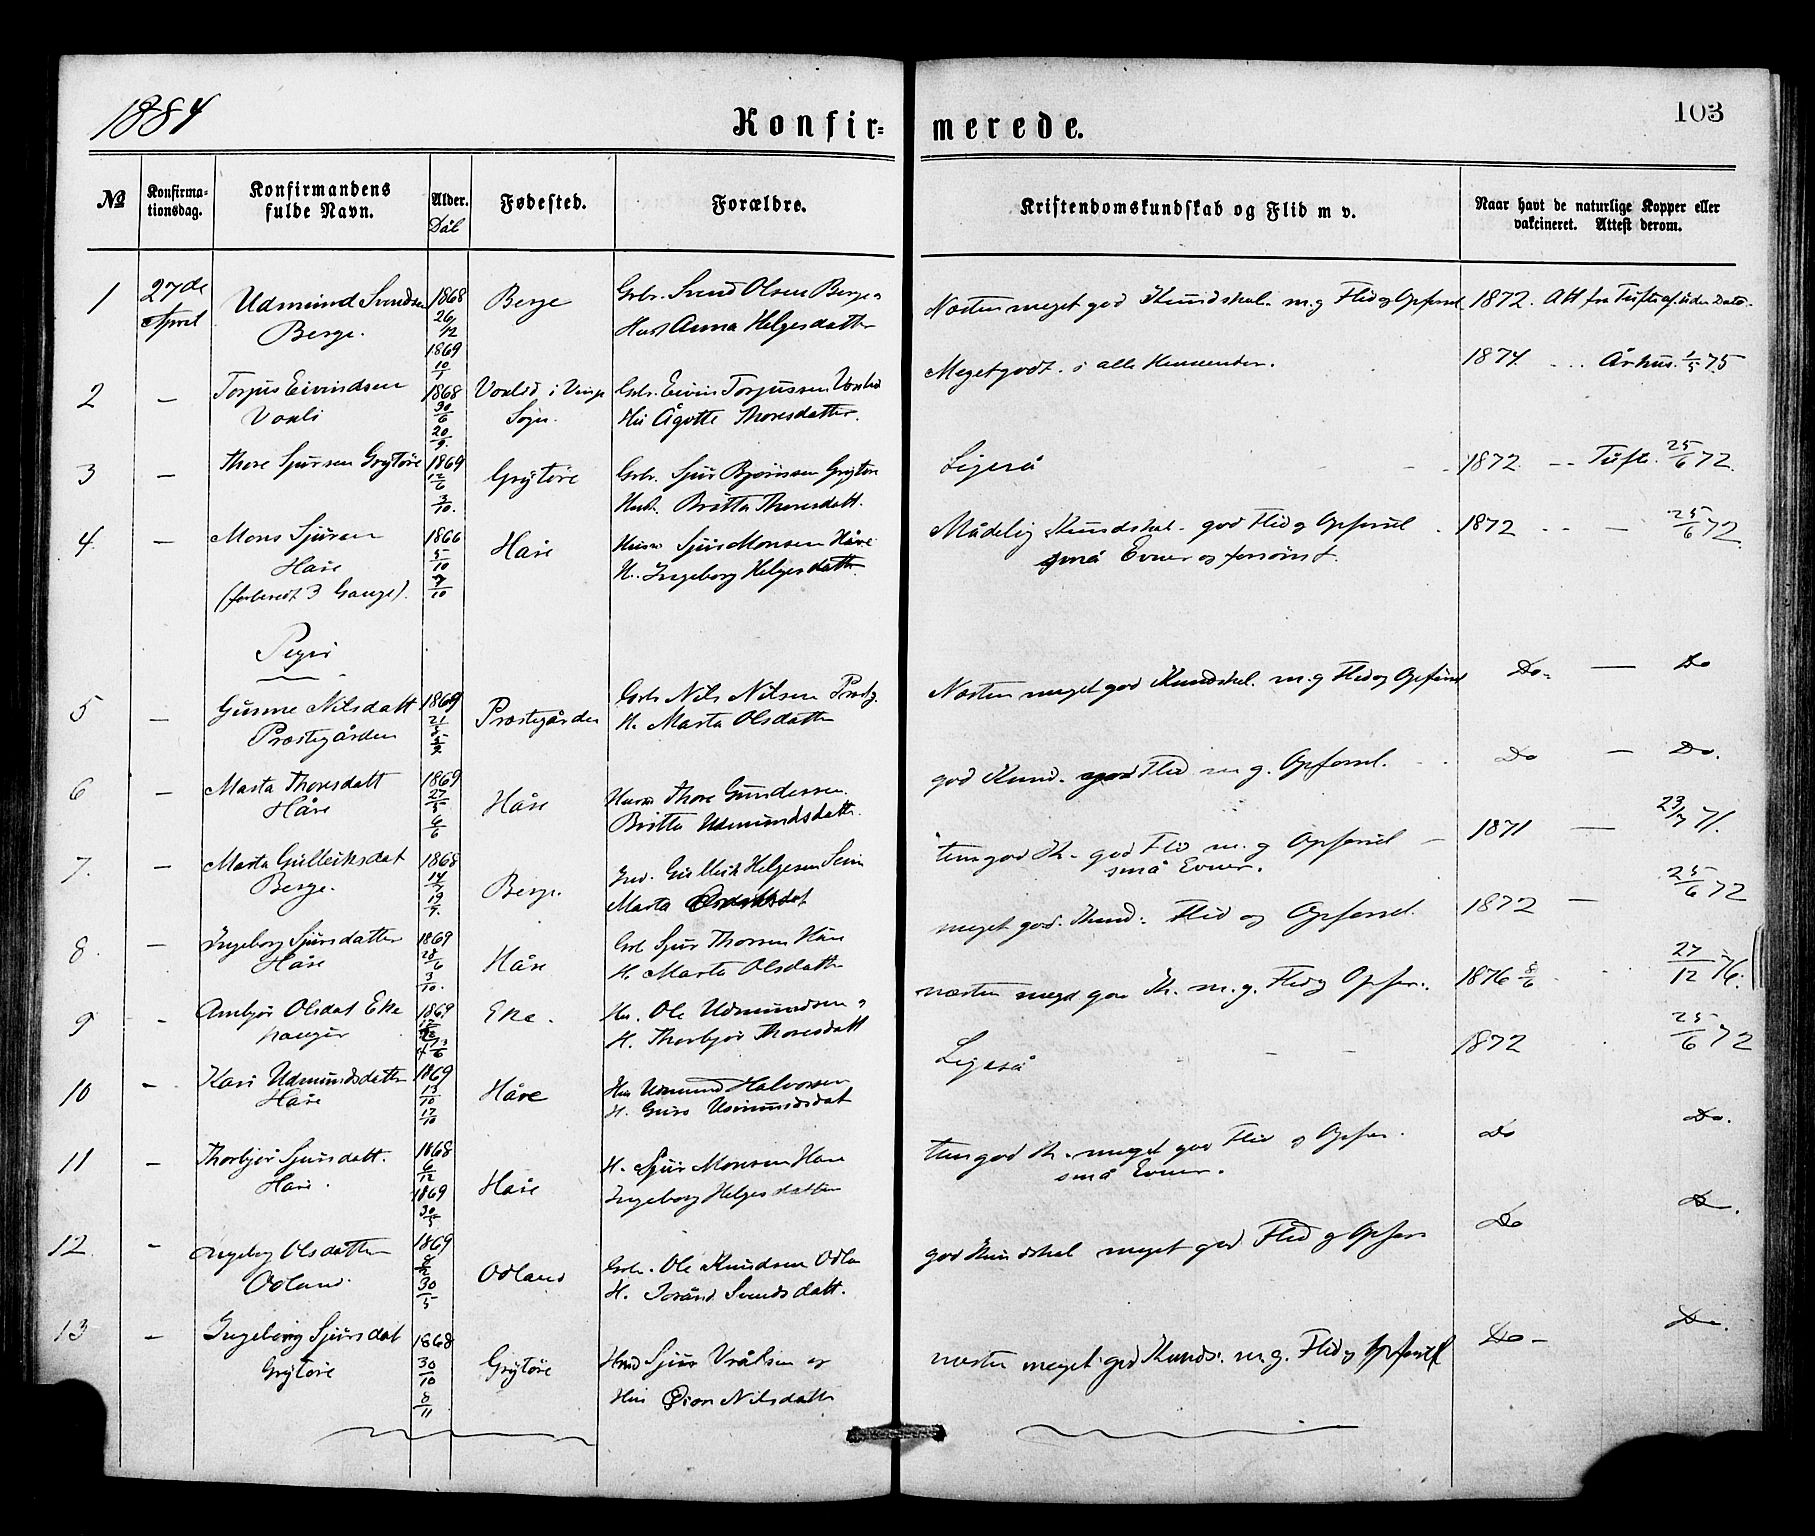 1884
Konfir=
merede.
103
№
Konfirma-
tionsdag.
Konfirmandens
fulde Navn.
Alder.
Dåb
Fødested.
Forældre.
Kristendomskundskab og Flid m v.
Naar havt de naturlige Kopper eller
vakcineret. Attest derom.
1
27de
April
Udmund Svendsen
Berge.
1868
26/12
1869
10/1
Berge
Grbr. Svend Olsen Berge
Hust Anna Helgesdatter
Næsten meget god Kundskab. m.g Flid og Opførsel
1872.
2
–
Torjus Eivindsen
Vaali
1868
30/6
20/9.
i Vinje
Sogn.
Grbr. Eivin Torjussen
Hu Ågotte Thoresdatter.
Meget godt. i alle Henseender.
1874 . . . Århus. 1/5 75
3
–
Thore Sjursen Grytøre
1869
12/6
3/10.
Grytøre
Grbr. Sjur Bjørnsen Grytøre
Hust. Britta Thoresdatt.
Ligeså
1872. -- Tufte. 25/6 72.
4.
–
Mons Sjursen
Håre
(forberedt 3 Gange).
1866
5/10
7/10
Håre
Husm Sjur Monsen Håre
H. Ingeborg Helgesdatt.
Mådelig Kundskab. god Flid og Opførsel
små Evner og forsømt.
1872 -- – 25/6 72.
Piger
5
–
Gunne Nilsdatt
Præstegården
1869
21/5
Præstegården
Grbr Nils Nilsen Præstg.
H. Marta Olsdatter
Næsten meget god Kundskab. m.g Flid og Opførsel
Do. — Do
6
–
Marta Thoresdatt
Håre
1869
27/5
6/6
Håre
Husm Thore Gundersen.
Britta Udmundsdatt.
god Kund. god Flid m.g. Opførsel.
Do — Do.
7.
–
Marta Gulleiksdat
Berge.
1868
14/7
19/7.
Berge.
Gulleik Helgesen
Marta
tem god K. god Flid m.g Opførsel
små Evner.
1871 — 23/7 71.
8.
–
Ingeborg Sjursdatter
Håre
1869
28/6
3/10.
Håre
Grb Sjur Thorsen Håre
H. Marta Olsdatter
meget god. Kund. Flid og Opførsel.
1872 – 25/6 72
9
–
Ambjør Olsdat Eke
haugen
1869
13/6
Eke.
Hu. Ole Udmundsen og
H. Thorbjør Thoresdatt
næsten meget god K. m.g. Flid og Opfør.
1876 8/6 27/12 76.
10
–
Kari Udmundsdatter
Håre
1869
13/10
17/10
Håre
Hu Udmund Halvorsen
H. Guro Udmundsdat
Ligeså
1872 25/6 72
11
–
Thorbjør Sjursdatt.
Håre.
1868
6/12
1869
30/5
Håre
H. Sjur Monsen Håre
Ingeborg Helgesdatter
tem god K. meget god Flid og Opfør.
små Evner.
Do Do.
12.
–
Ingeborg Olsdatter
Odland.
1869
30/5
Odland
Grbr. Ole Knudsen Odla
H. Jorånd Svendsdatt.
god Kundskab meget god Flid og Opfør
Do Do.
13
–
Ingeborg Sjursdat
Grytøre
1868
30/10
8/11
Grytøre
Hmd Sjur Vråksen og
Hu Nilsdatter
næsten meget god Kunds. m.g. Flid og Opførsel
Do – Do.